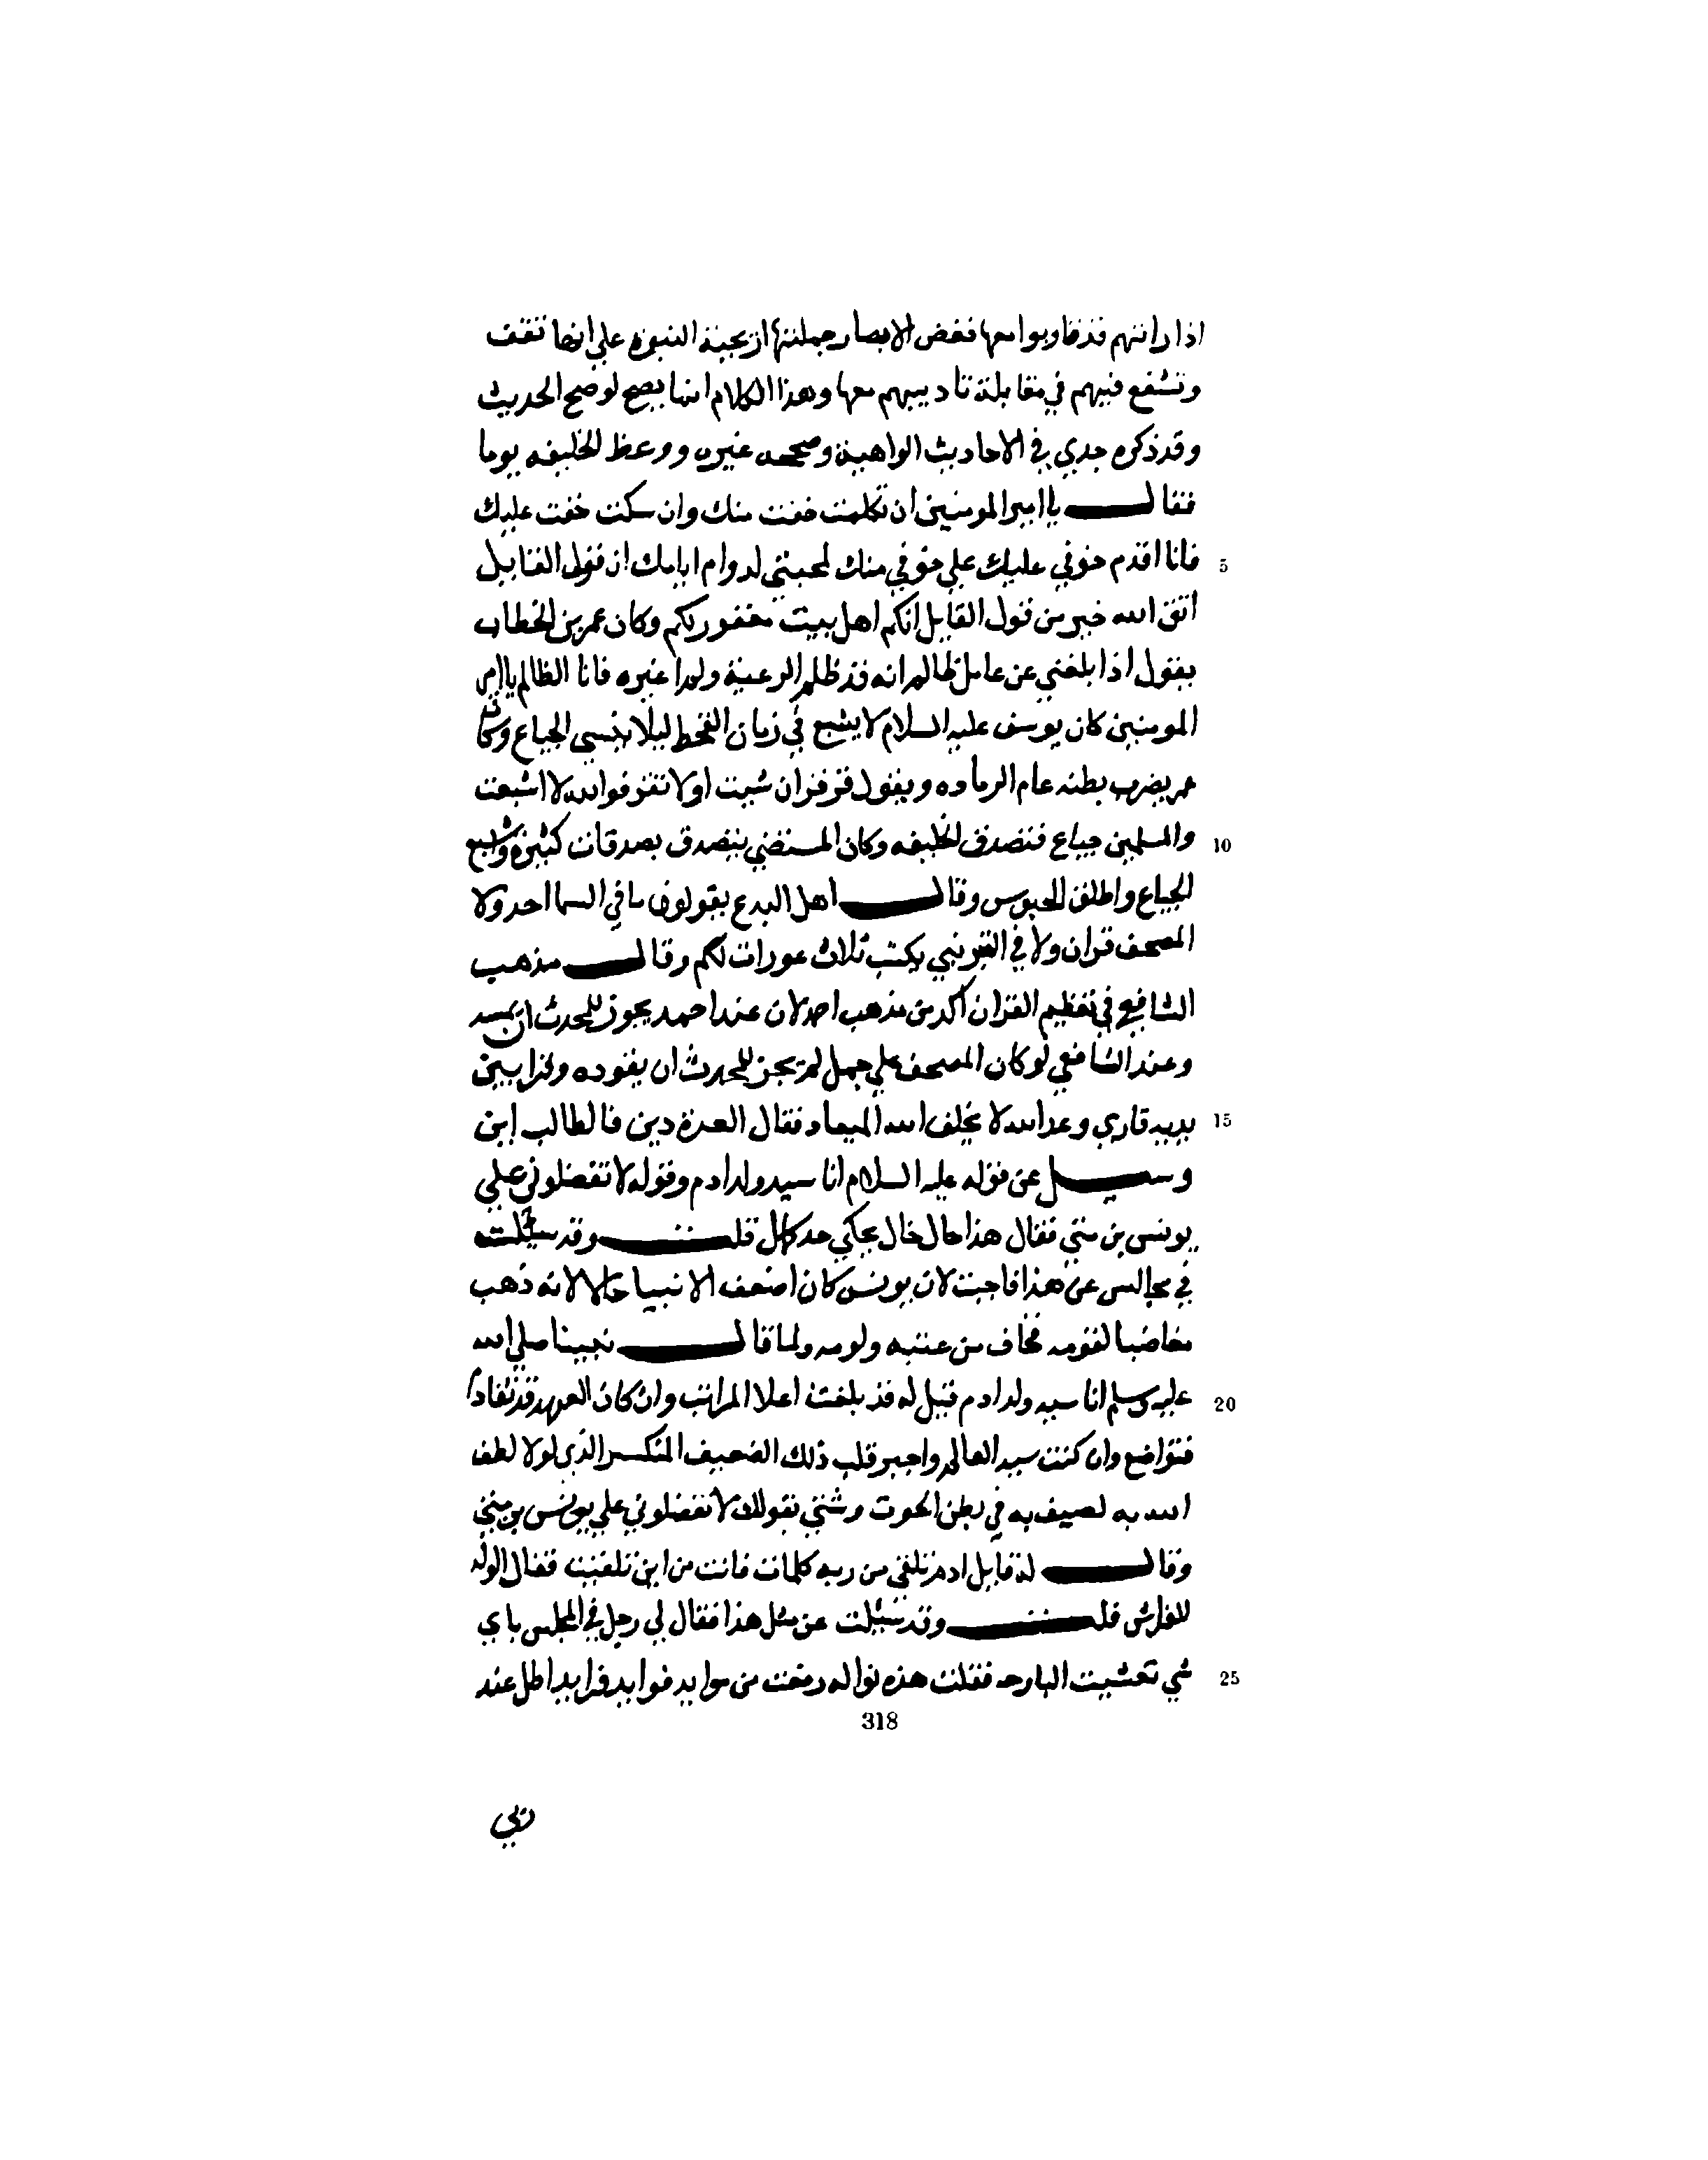 اذا راتهم قد تاوبوا معها فغض الابصار جملتها از يحبنه النبوه علي انها تقف
وتشفع فيهم في مقابلة تاديبهم معها وهذا الكلام انما يصح لو صح الحديث
وقد ذكره جدي في الاحاديث الواهية وصححه غيره ووعظ الخليفه يوما
فقال يا امير المومنين ان تكلمت خفت منك وان سكت خفت عليك
5 فانا اقدم خوفي عليك علي خوفي منك لمحبتي لدوام ايامك ان قول القايل
اتق الله خير من قول القايل انكم اهل بيت مغفور لكم وكان عمر بن الخطاب
يقول اذا بلغني عن عامل ظالم انه قد ظلم الرعية ولم اغيره فانا الظالم يا امير
المومنين كان يوسف عليه السلام لا يشبع في زمان القحط ليلا ينسي الجياع وكان
عمر يضرب بطنه عام الرماده ويقول قرقر ان شيت او لا تقرقر فوالله لا شبعت
10 والمسلمين جياع فتصدق الخليفه وكان المستضي يتصدق بصدقات كثيرة وشبع
الجياع واطلق الحبوس وقال اهل البدع يقولون ما في السما احد ولا
المصحف قران ولا في القبر نبي يكتب ثلاث عورات لكم وقال مذهب
الشافعي في تعظيم القران اكد من مذهب احمد لان عند احمد يجوز للمحدث ان يمسه
وعند الشافعي لو كان المصحف علي جمل لم يجز للمحدث ان يقوده وقرا بين
15 يديه قاري وعد الله لا يخلف الله الميعاد فقال العدة دين فالطالب اين
وسيل عن قوله عليه السلام انا سيد ولد ادم وقوله لا تفضلوني علي
يونس بن متي فقال هذا حال خال يحاكي حد كامل قلت وقد سيلت
في مجالس عن هذا فاجبت لان يونس كان اضعف الانبيا حالا لانه ذهب
مغاضبا لقومه فخاف من عتبه ولومه ولما قال نبينا صلي الله
20 عليه وسلم انا سيد ولد ادم قيل له قد بلغت اعلا المراتب وان كان العهد قد تقادم
فتواضع وان كنت سيد العالم واجبر قلب ذلك الضعيف المنكسر الذي لولا لطف
الله به لصيف به في بطن الحوت وشتي بقولك لا تفضلوني علي يونس بن متي
وقال له قايل ادم تلقي من ربه كلمات فانت من اين تلقيت فقال الولد
للفراش قلت وقد سيلت عن مثل هذا فقال لي رجل في المجلس باي
25 شي تعشيت البارحه فقلت هذه نواله رفعت من موايد فوايد فرايد اظل عند
318
ربي